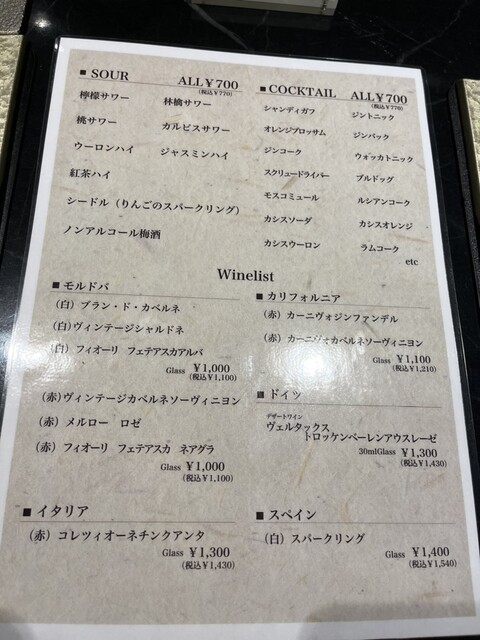 ■ SOUR ALL￥700
(税込￥770)
檸檬サワー 林檎サワー
桃サワー カルピスサワー
ウーロンハイ ジャスミンハイ
紅茶ハイ
シードル（りんごのスパークリング）
ノンアルコール梅酒
■ COCKTAIL ALL￥700
(税込￥770)
シャンディガフ ジントニック
オレンジブロッサム ジンバック
ジンコーク ウォッカトニック
スクリュードライバー ブルドッグ
モスコミュール ルシアンコーク
カシスソーダ カシスオレンジ
カシスウーロン ラムコーク
etc
Winelist
■ モルドバ
（白）ブラン・ド・カベルネ
（白）ヴィンテージシャルドネ
（白）フィオーリ フェテアスカアルバ
Glass ￥1,000
(税込￥1,100)
（赤）ヴィンテージカベルネソーヴィニヨン
（赤）メルロー ロゼ
（赤）フィオーリ フェテアスカ ネアグラ
Glass ￥1,000
(税込￥1,100)
■ イタリア
（赤）コレツィオーネチンクアンタ
Glass ￥1,300
(税込￥1,430)
■ カリフォルニア
（赤）カーニヴォジンファンデル
（赤）カーニヴォカベルネソーヴィニヨン
Glass ￥1,100
(税込￥1,210)
■ ドイツ
デザートワイン
ヴェルタックス
トロッケンベーレンアウスレーゼ
30mlGlass ￥1,300
(税込￥1,430)
■ スペイン
（白）スパークリング
Glass ￥1,400
(税込￥1,540)